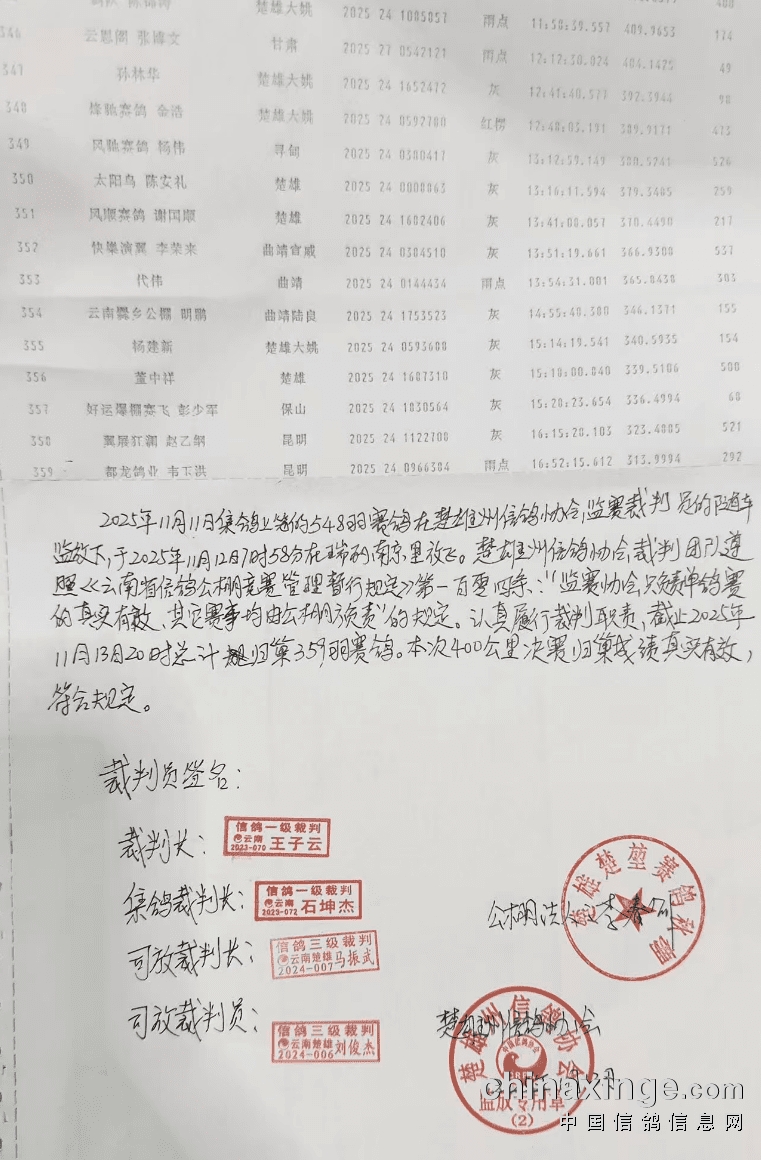 楚雄大姚 2025 24 1085857 雨点 11:58:39.557 409.9653 400
346 云恩阁 张博文 甘肃 2025 27 0542121 雨点 12:12:30.024 404.1425 174
347 孙林华 楚雄大姚 2025 24 1652412 灰 12:41:40.577 392.3944 49
348 锋驰赛鸽 金浩 楚雄大姚 2025 24 0592700 红楞 12:48:03.191 389.9171 98
349 风驰赛鸽 杨伟 寻甸 2025 24 0380417 灰 13:12:59.149 380.5241 473
350 太阳鸟 陈安礼 楚雄 2025 24 0808063 灰 13:16:11.594 379.3405 526
351 风顺赛鸽 谢国顺 楚雄 2025 24 1602406 灰 13:41:08.057 370.4490 259
352 快乐演翼 李荣来 曲靖宣威 2025 24 0304510 灰 13:51:19.661 366.9308 217
353 代伟 曲靖 2025 24 0144434 雨点 13:54:31.801 365.8438 537
354 云南爨乡公棚 明鹏 曲靖陆良 2025 24 1753523 灰 14:55:40.300 346.1371 303
355 杨建新 楚雄大姚 2025 24 0593608 灰 15:14:19.541 340.5935 155
356 董中祥 楚雄 2025 24 1607310 灰 15:18:00.840 339.5106 154
357 好运爆棚赛飞 彭少军 保山 2025 24 1030564 灰 15:28:23.654 336.4994 500
358 冀展狂澜 赵乙钢 昆明 2025 24 1122700 灰 16:15:20.103 323.4885 68
359 都龙鸽业 韦玉洪 昆明 2025 24 0966304 雨点 16:52:15.612 313.9994 521
292
2025年11月11日集鸽上链的548羽赛鸽在楚雄州信鸽协会,监赛裁判员的随车
监放下,于2025年11月12日7时58分在瑞丽南京里放飞。楚雄州信鸽协会裁判团队遵
照《云南省信鸽公棚竞赛管理暂行规定》第一百零四条:“监赛协会只负责单鸽赛
的真实有效,其它赛事均由公棚方负责”的规定。认真履行裁判职责,截止2025年
11月13日20时总计归巢359羽赛鸽。本次400公里决赛归巢成绩真实有效,
符合规定。
裁判员签名:
裁判长: 信鸽一级裁判 云南 2023-070 王子云
集鸽裁判长: 信鸽一级裁判 云南 2023-072 石坤杰
司放裁判长: 信鸽三级裁判 云南楚雄 2024-007 马振武
司放裁判员: 信鸽三级裁判 云南楚雄 2024-006 刘俊杰
公棚法人:李春
楚雄楚堃赛鸽秋棚
楚雄州信鸽协会
楚雄州信鸽协会
中国信鸽协会
监放专用章
(2)
chinaxinge.com
中国信鸽信息网